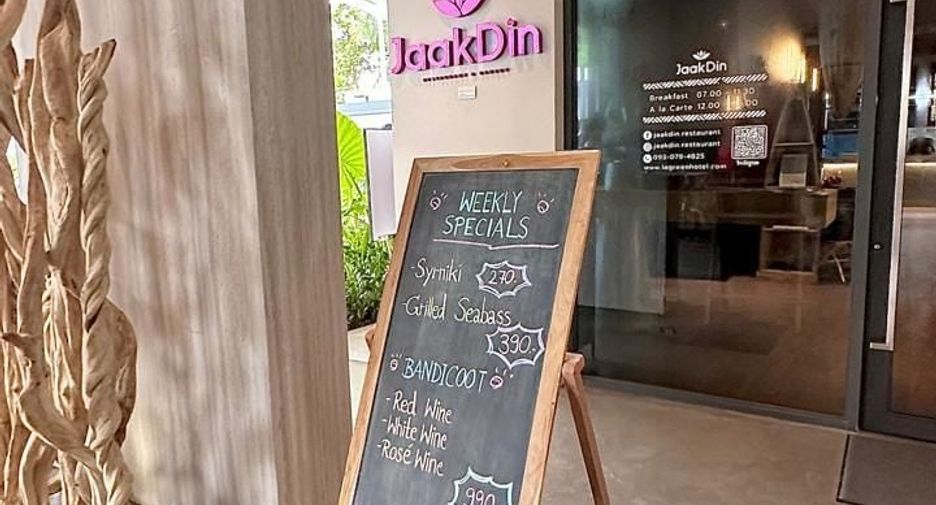 JaakDin
JaakDin
Breakfast 07.00 - 11.30
A la Carte 12.00
jaakdin.restaurant
jaakdin.restaurant
093-079-4625
www.lagreenhotel.com
WEEKLY
SPECIALS
-Syrniki 270.-
-Grilled Seabass
390.-
BANDICOOT
-Red Wine
-White Wine
-Rosé Wine
990